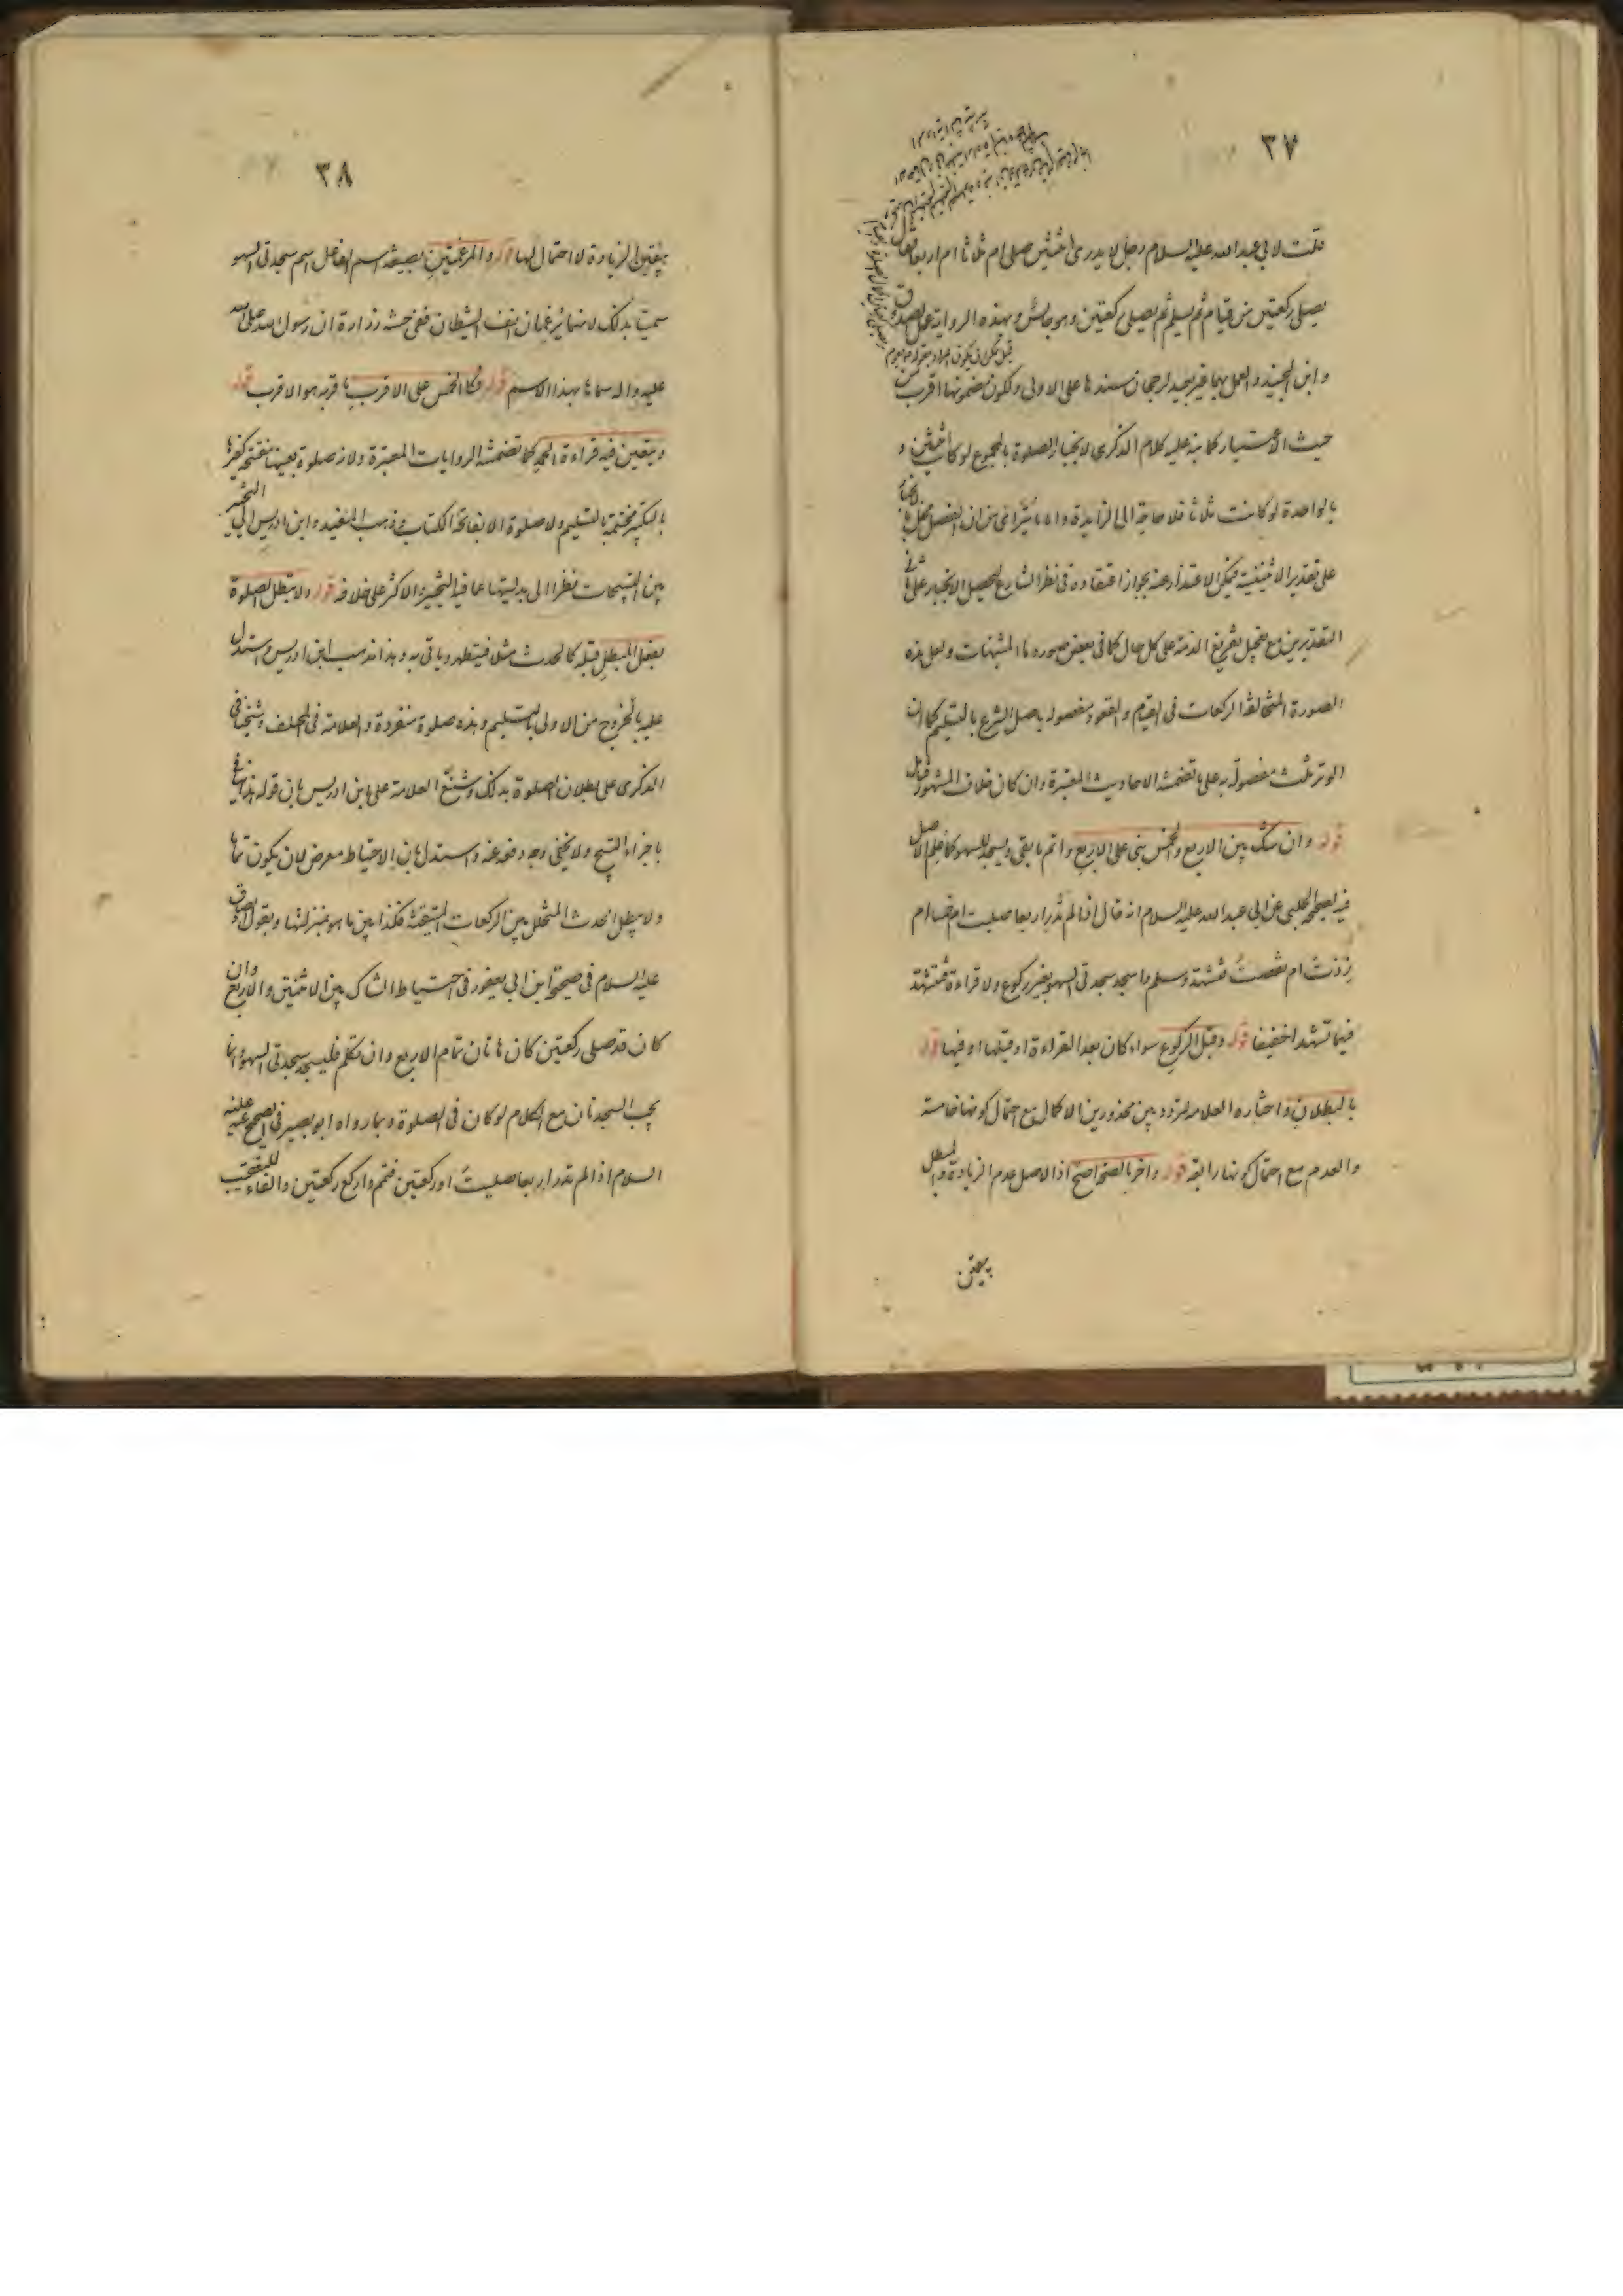 ٣٧
قلت لابي عبد الله عليه السلام رجل لا يدري اثنتين صلى ام ثلاثا ام اربعا فقال
يصلي ركعتين من قيام ثم يسلم ثم يصلي ركعتين وهو جالس وبهذه الرواية عمل الصدوق
وابن الجنيد والعمل بهما غير بعيد لرجحان سندها على الاولى ولكون مضمونها اقرب من
حيث الاعتبار كما نبه عليه كلام الذكرى لانجبار الصلوة بالمجموع لو كانت اثنتين و
بالواحدة لو كانت ثلاثا فلا حاجة الى الزايدة واما ما يتراءى من ان الفصل مخل بالانجبار
على تقدير الاثنينية فيمكن الاعتذار عنه بجواز اعتقاده في نظر الشارع لتحصيل الانجبار على
التقديرين مع تعجيل تفريغ الذمة على كل حال كما في بعض صوره ما المشتبهات ولعل هذه
الصورة المتخالفة الركعات في القيام والقعود مفصولة باصل الشرع بالتسليم كما ان
الوتر ثلث مفصولة به على ما تضمنته الاحاديث المعتبرة وان كان خلاف المشهور
قوله وان شك بين الاربع والخمس بنى على الاربع واتم ما بقي ويسجد للسهو كما علم الاصل
فيه لصحيحه الحلبي عن ابي عبد الله عليه السلام انه قال اذا لم تدر اربعا صليت ام خمسا ام
زدت ام نقصت فتشهد وسلم واسجد سجدتي السهو بغير ركوع ولا قراءة فتشهد
فيهما تشهدا خفيفا قوله وقبل الركوع سواء كان بعد القراءة او قبلها او فيها قوله
بالبطلان واختاره العلامة لتردده بين محذورين الاكمال مع احتمال كونها خامسة
والهدم مع احتمال كونها رابعة قوله واخر بالصحة اصح اذ الاصل عدم الزيادة والمبطل
يعين
٣٨
يقين الزيادة لا احتمالها قوله والمرغمتين بصيغة اسم الفاعل اسم سجدتي السهو
سميتا بذلك لانهما يرغمان انف الشيطان ففي حسنة زرارة ان رسول الله صلى الله
عليه واله سماها بهذا الاسم قوله فكالخمس على الاقرب ما قربه هو الاقرب قوله
ويتعين فيه قراءة الحمد كما تضمنته الروايات المعتبرة ولانه صلوة بعينها مفتتحة كغيرها
بالتكبير مختتمة بالتسليم ولا صلوة الا بفاتحة الكتاب وذهب المفيد وابن ادريس الى التخيير
بين التسبيحات نظرا الى بدليتها عما فيه التخيير والاكثر على خلافه قوله ولا تبطل الصلوة
بفعل المبطل قبله كالحدث مثلا فيتطهر وياتي به وهذا مذهب ابن ادريس واستدل
عليه بالخروج من الاولى بالتسليم وهذه صلوة منفردة والعلامة في المختلف وشيخنا في
الذكرى على بطلان الصلوة بذلك وشنع العلامة على ابن ادريس بان قوله هذا
باجزاء التسبيح ولا يخفى وجه دفعه عنه واستدل بان الاحتياط معرض لان يكون تماما
ولا يبطل الحدث المتخلل بين الركعات المتيقنة فكذا بين ما هو بمنزلتها وبقول الصادق
عليه السلام في صحيحة ابن ابي يعفور في احتياط الشاك بين الاثنتين والاربع وان
كان قد صلى ركعتين كان هاتان تمام الاربع وان تكلم فليسجد سجدتي السهو وانما
يجب السجدتان مع الكلام لو كان في الصلوة وبما رواه ابو بصير في الصحيح عنه عليه
السلام اذا لم تدر اربعا صليت او ركعتين فقم واركع ركعتين والفاء للتعقيب